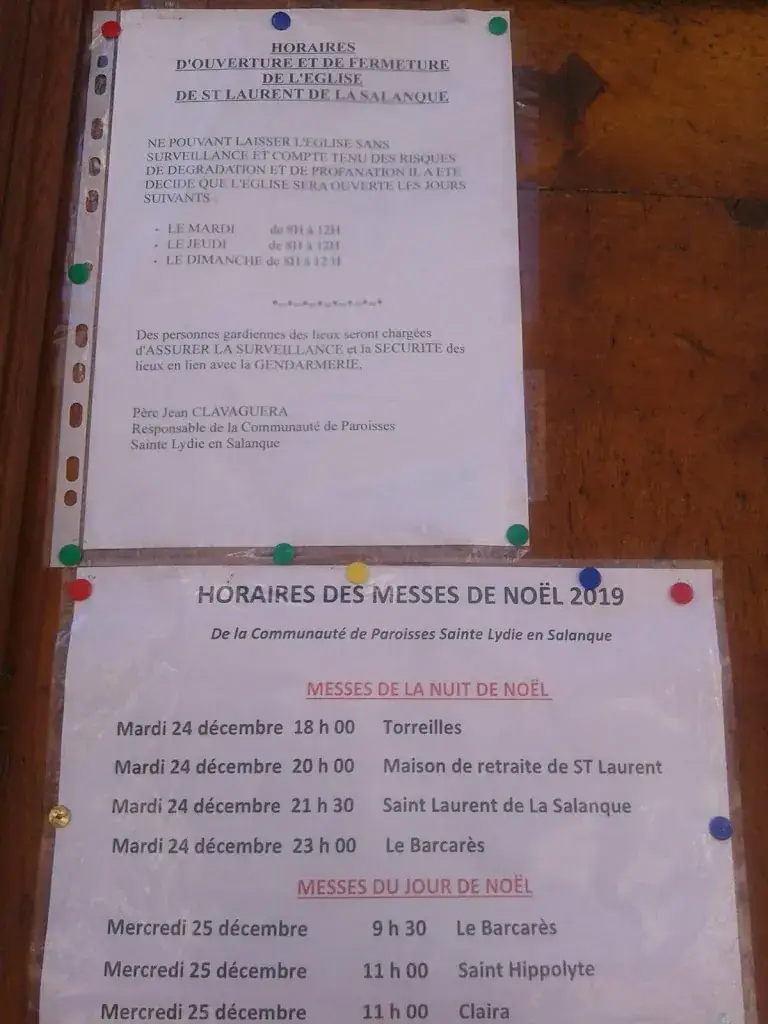 HORAIRES
D'OUVERTURE ET DE FERMETURE
DE L'EGLISE
DE ST LAURENT DE LA SALANQUE
NE POUVANT LAISSER L'EGLISE SANS
SURVEILLANCE ET COMPTE TENU DES RISQUES
DE DEGRADATION ET DE PROFANATION IL A ETE
DECIDE QUE L'EGLISE SERA OUVERTE LES JOURS
SUIVANTS
- LE MARDI de 8H à 12H
- LE JEUDI de 8H à 12H
- LE DIMANCHE de 8H à 12H
Des personnes gardiennes des lieux seront chargées
d'ASSURER LA SURVEILLANCE et la SECURITE des
lieux en lien avec la GENDARMERIE.
Père Jean CLAVAGUERA
Responsable de la Communauté de Paroisses
Sainte Lydie en Salanque
HORAIRES DES MESSES DE NOËL 2019
De la Communauté de Paroisses Sainte Lydie en Salanque
MESSES DE LA NUIT DE NOËL
Mardi 24 décembre 18 h 00 Torreilles
Mardi 24 décembre 20 h 00 Maison de retraite de ST Laurent
Mardi 24 décembre 21 h 30 Saint Laurent de La Salanque
Mardi 24 décembre 23 h 00 Le Barcarès
MESSES DU JOUR DE NOËL
Mercredi 25 décembre 9 h 30 Le Barcarès
Mercredi 25 décembre 11 h 00 Saint Hippolyte
Mercredi 25 décembre 11 h 00 Claira